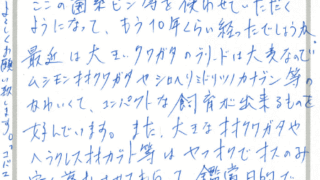 この菌糸ビン等を使わせていただく
ようになって、もう10年くらい経ったでしょうか。
最近は大きいクワガタのブリードは大変なので
ムシモンオオクワガタやシロヘリミドリツノカナブン等の
かわいくて、コンパクトな飼育が出来るものを
好んでいます。また、大きなオオクワガタや
ヘラクレスオオカブト等はヤフオクでオスのみ
鑑賞目的で
よろしくお願い致します。